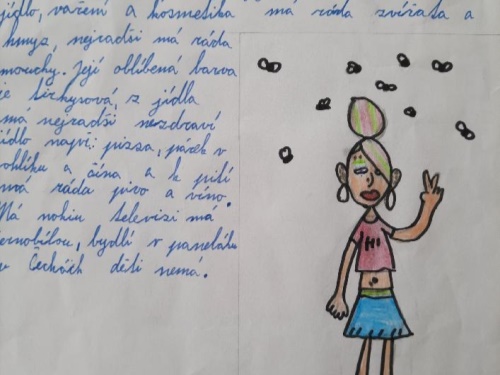 jídlo, vaření a kosmetika má ráda zvířata a
hmyz, nejradši má ráda
mouchy. Její oblíbená barva
je tirkysová, z jídla
má nejradši nezdraví
jídlo např: pizza, párek v
rohlíku a čína a k pití
má ráda pivo a víno.
Má nohiu televizi má
černobílou, bydlí v paneláku
v Čechách děti nemá.
HI